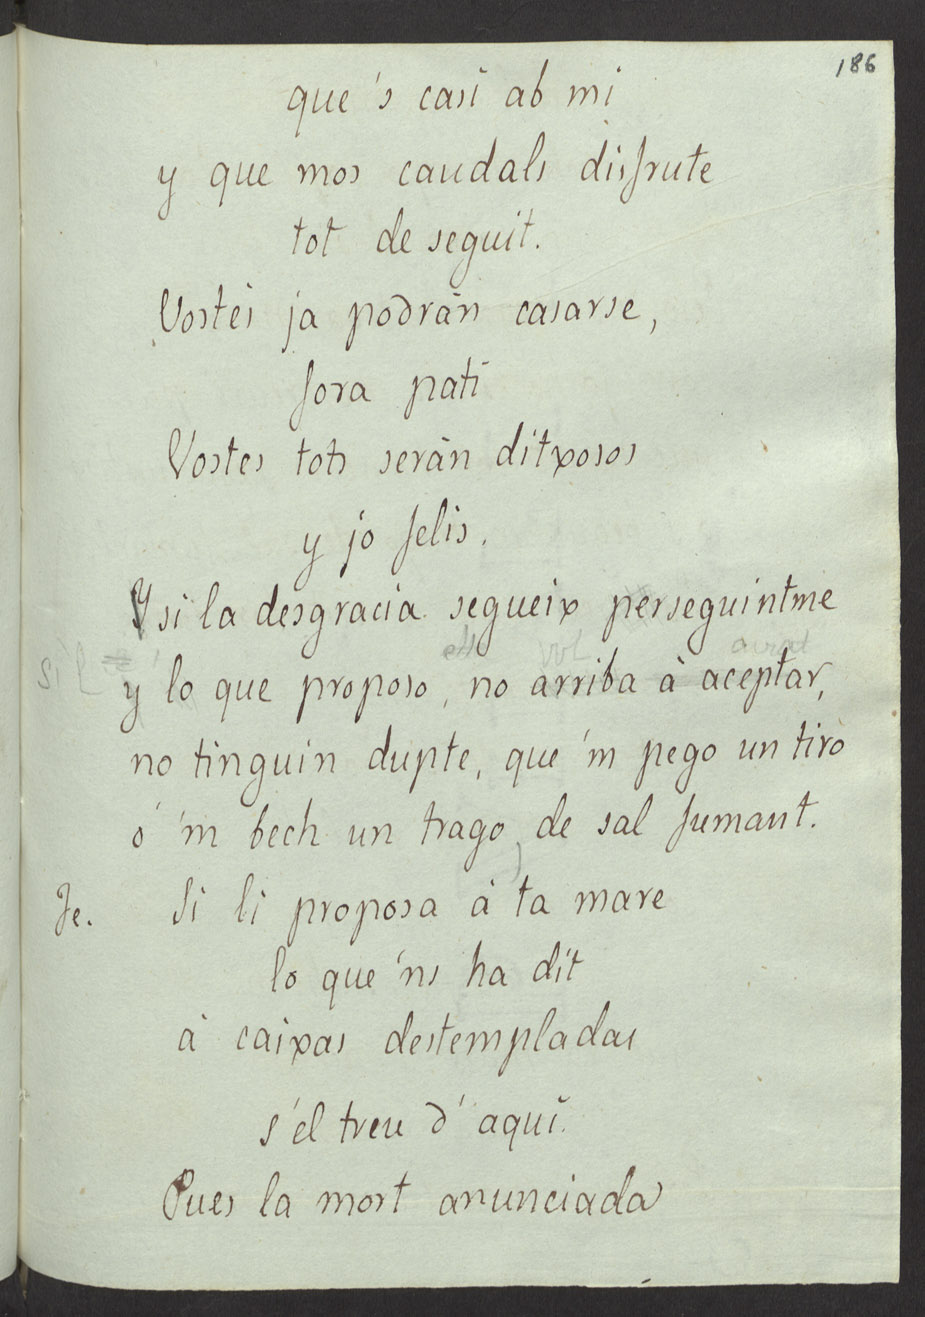 186
que 's casi ab mi
y que mos caudals disfrute
tot de seguit.
Vostés ja podrán casarse,
fora patí
Vostes tots serán ditxosos
y jo felis.
Y si la desgracia segueix perseguintme
y lo que proposo, no arriba á aceptar,
no tinguin dupte, que 'm pego un tiro
ó 'm bech un trago, de sal fumant.
Je. Si li proposa á ta mare
lo que 'ns ha dit
á caixas destempladas
s'el treu d'aquí.
Pues la mort anunciada